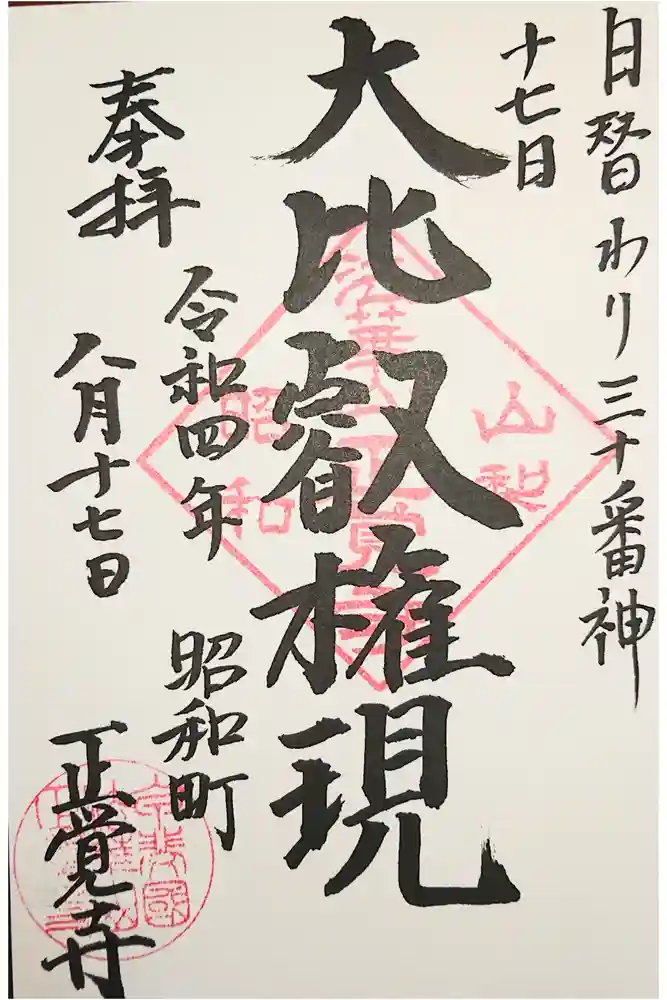 日替わり三十番神
十七日
大比叡権現
奉拝
令和四年
八月十七日
昭和町
正覚寺
山梨
法華宗正覚寺
昭和